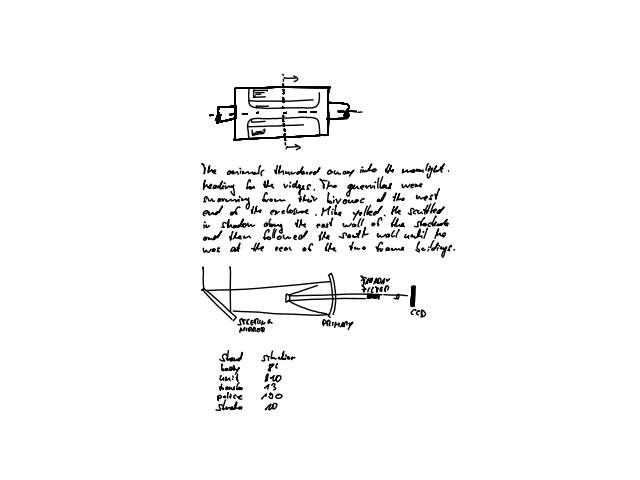 The animals thundered away into the moonlight.
heading for the ridges. The guerillas were
swarming from their bivouac at the west
end of the enclosure. Mike yelled. He scuttled
in shadow along the east wall of the stockade
and then followed the south wall until he
was at the rear of the two frame buildings.
FARADAY
FILTER
STEERING
MIRROR
PRIMARY
CCD
situation
body 82
unit 810
13
police 190
10